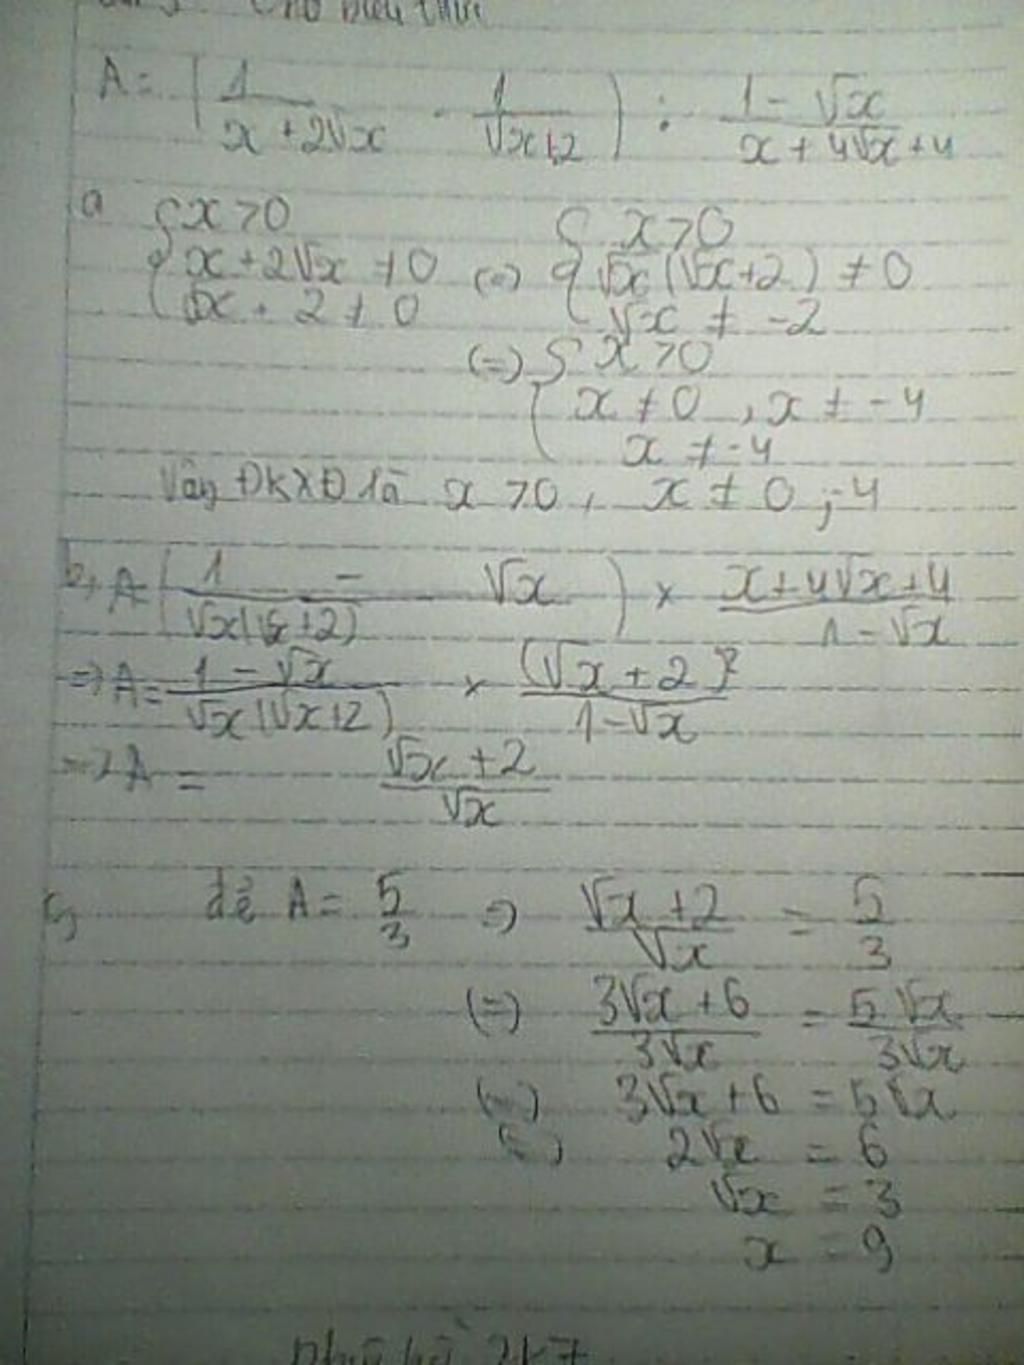 Cho biểu thức
A = ( 1/(x + 2√x) - 1/(√x+2) ) : (1 - √x)/(x + 4√x + 4)
a { x > 0
{ x + 2√x ≠ 0
{ √x + 2 ≠ 0
(=) { x > 0
{ √x (√x + 2) ≠ 0
{ √x ≠ -2
(=) { x > 0
{ x ≠ 0 , x ≠ -4
{ x ≠ -4
Vậy ĐKXĐ là x > 0 , x ≠ 0 ; -4
b, A = ( (1 - √x)/(√x(√x + 2)) ) × (x + 4√x + 4)/(1 - √x)
=> A = (1 - √x)/(√x(√x + 2)) × (√x + 2)²/(1 - √x)
=> A = (√x + 2)/√x
c, để A = 5/3 => (√x + 2)/√x = 5/3
(=) (3√x + 6)/(3√x) = 5√x/(3√x)
(=) 3√x + 6 = 5√x
(=) 2√x = 6
√x = 3
x = 9